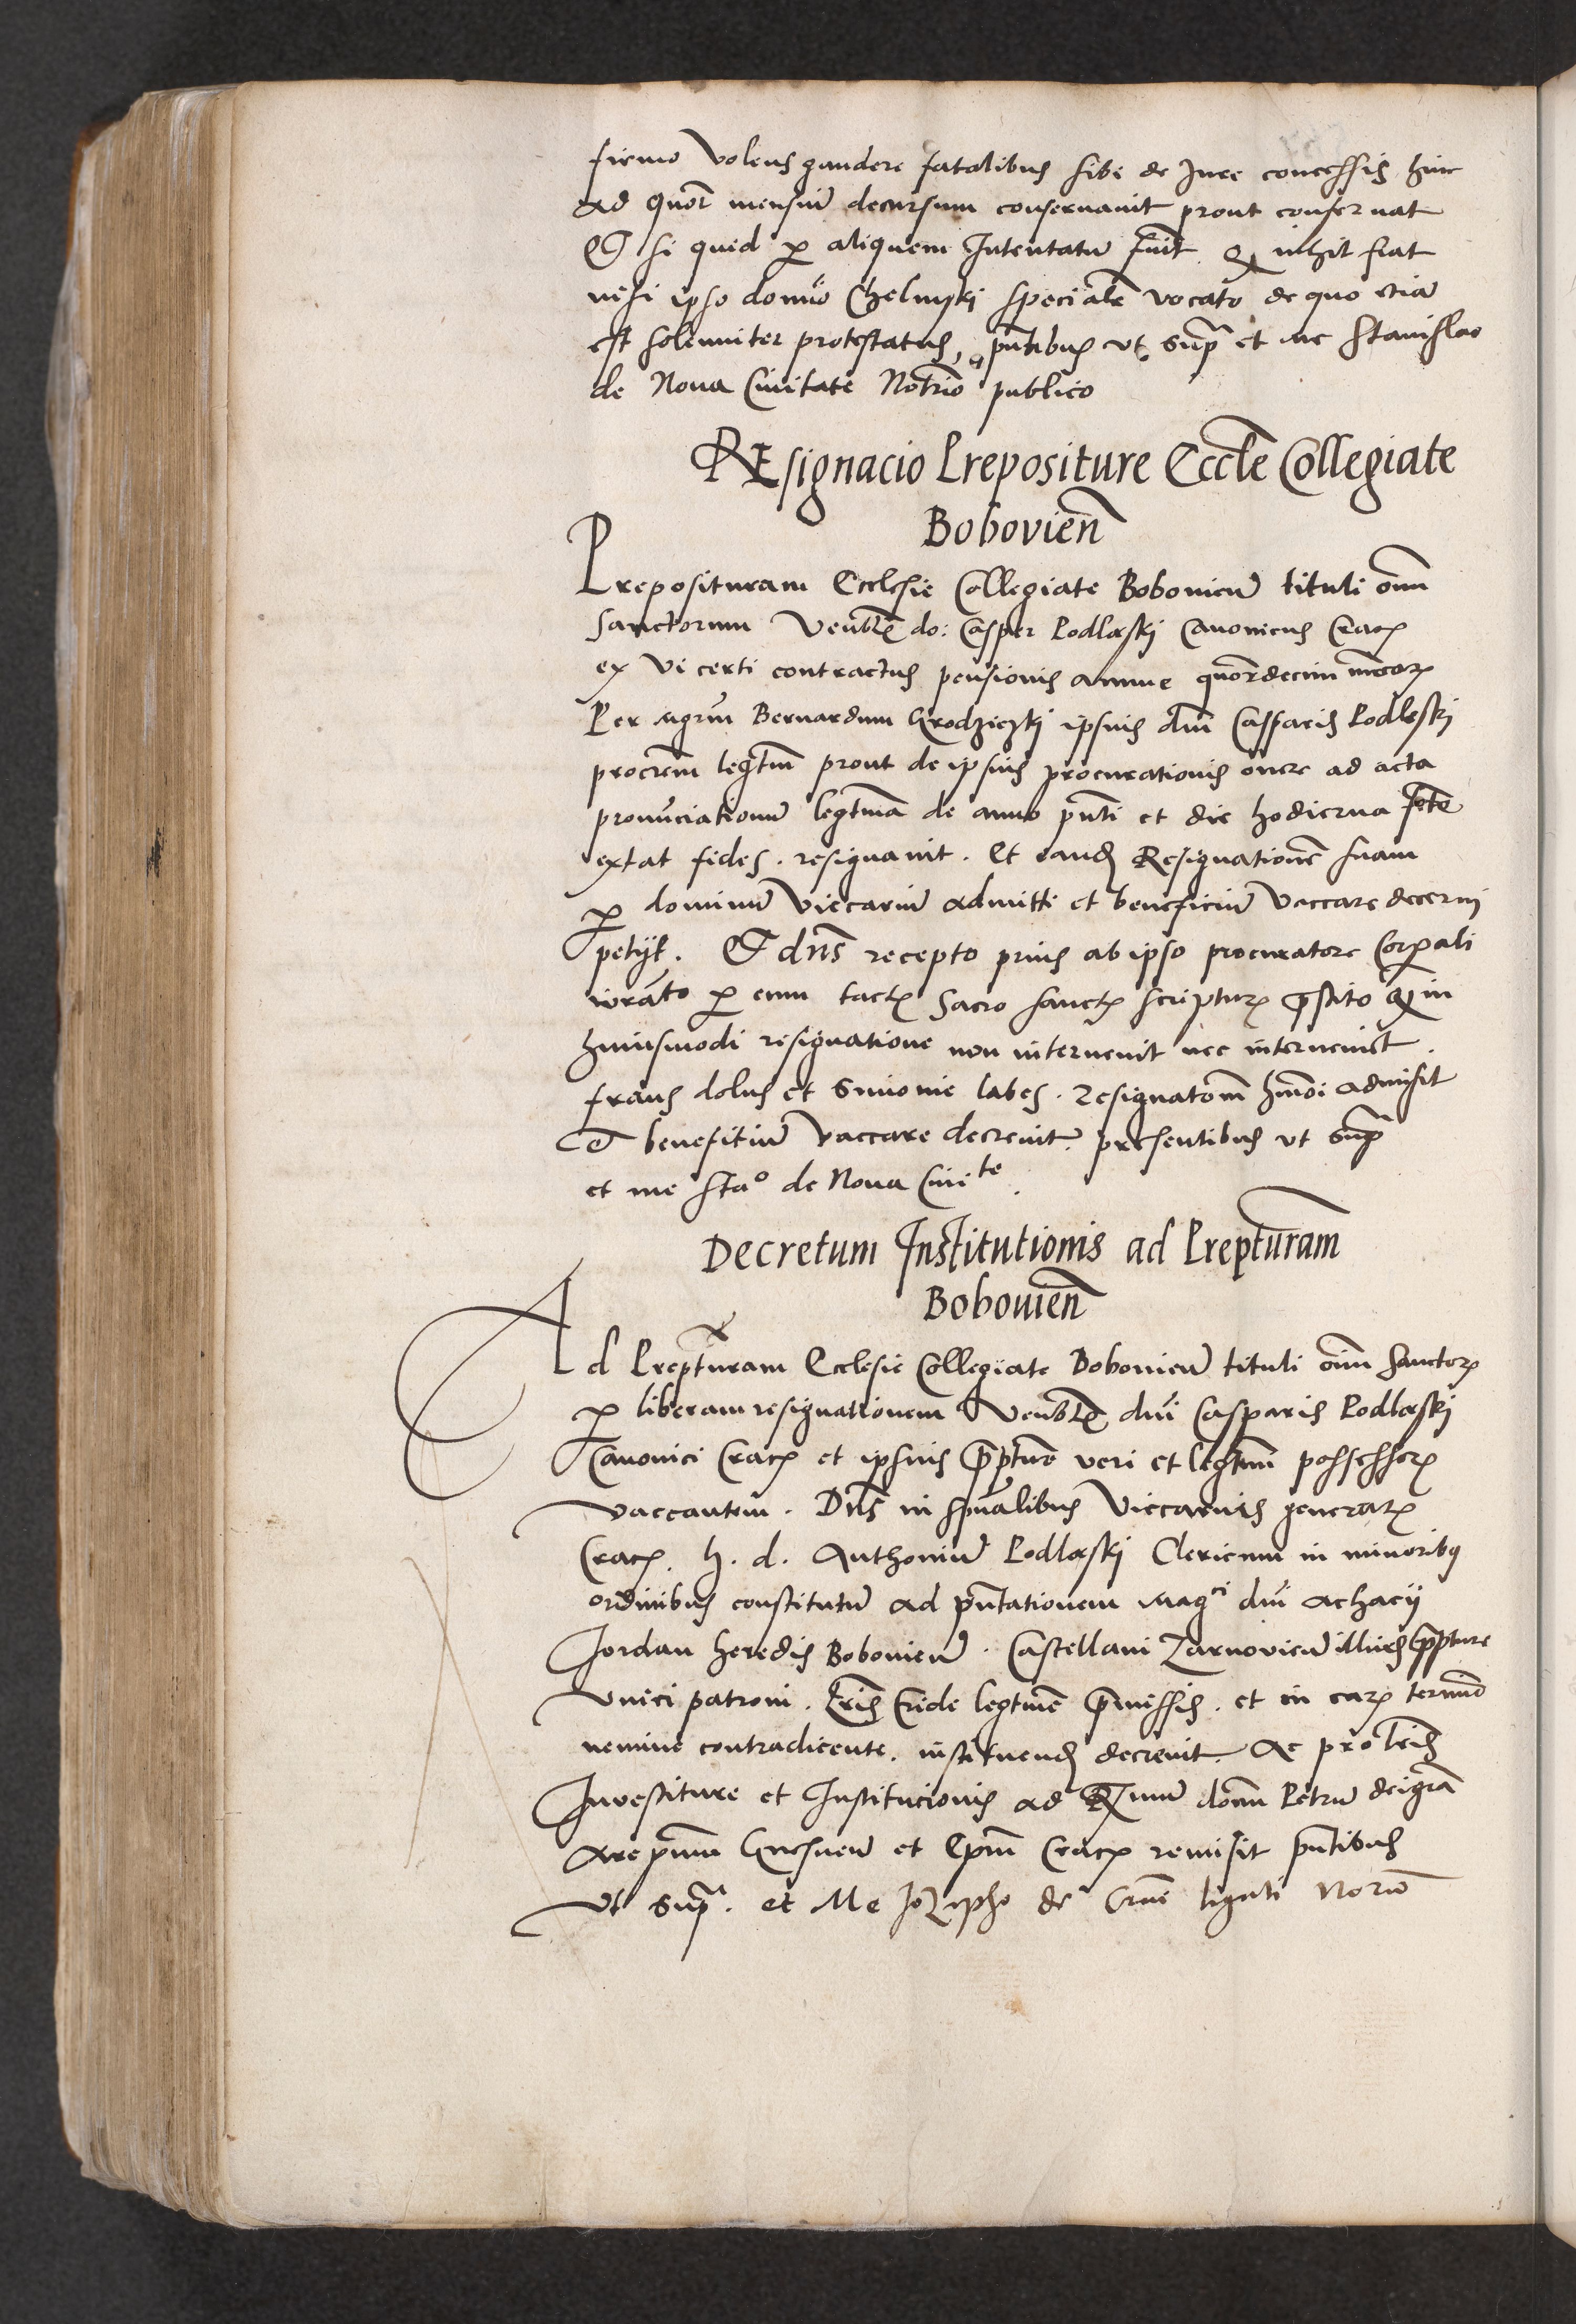 firmo volens gaudere fatalibus sibi de Jure concessis hinc
ad quor mensiu decursum conservavit prout conservat
Et si quid p aliquem Intentatu fuit q nihil fiat
nisi ipso domno Chelmski specialr vocato de quo etia
est solenniter protestatus, pntibus ut supra et me Stanislao
de Nova Civitate Notrio publico
REsignacio Prepositure Eccle Collegiate
Bobovien
Preposituram Ecclesie Collegiate Bobovien tituli oim
Sanctorum Venbl do: Casper Podleski Canonicus Crac
ex vi certi contractus pensionis annue quordecim mrcar
Per Mgrm Bernardum Grodziczki ipsius dni Casparis Podleski
procrem legtm prout de ipsius procurationis onere ad acta
pronunciationu legtma de anno pnti et die hodierna fcte
extat fides. resignavit. Et eand Resignatione suam
p dominu Viccariu admitti et beneficiu vaccare decerni
petyt. Et dns recepto prius ab ipso procuratore Corpali
iurato p eum tact Sacro sanct scriptur prestito q in
huiusmodi resignatione non intervenit nec interveniet.
fraus dolus et Simonie labes. Resignatom hmoi admisit
et benefitiu vaccare decrevit. presentibus ut supra
et me Stao de Nova Civite.
Decretum Institutionis ad Prepturam
Bobovien
Ad Prepturam Ecclesie Collegiate Bobovien tituli oim Sanctor
p liberam resignationem Venbl dni Casparis Podleski
Canonici Crac et ipsius prepture veri et legtm possessor
vaccantem. Dns in spualibus Viccarius generat
Crac. h. d. Anthoniu Podleski Clericum in minoribq
ordinibus constitutu ad pntationem Magci dni Achacy
Jordan heredis Bobovien. Castellani Zarnovicen illius prepture
unici patroni. Lris Cride legtme premissis. et in ear termino
nemine contradicente. instituend decrevit. Ac pro lris
Investiture et Institucionis ad Rmum domm Petru dei gra
Arepum Gnesnen et Epm Crac remisit pntibus
ut supra. et Me Jozepho de ligati Norio